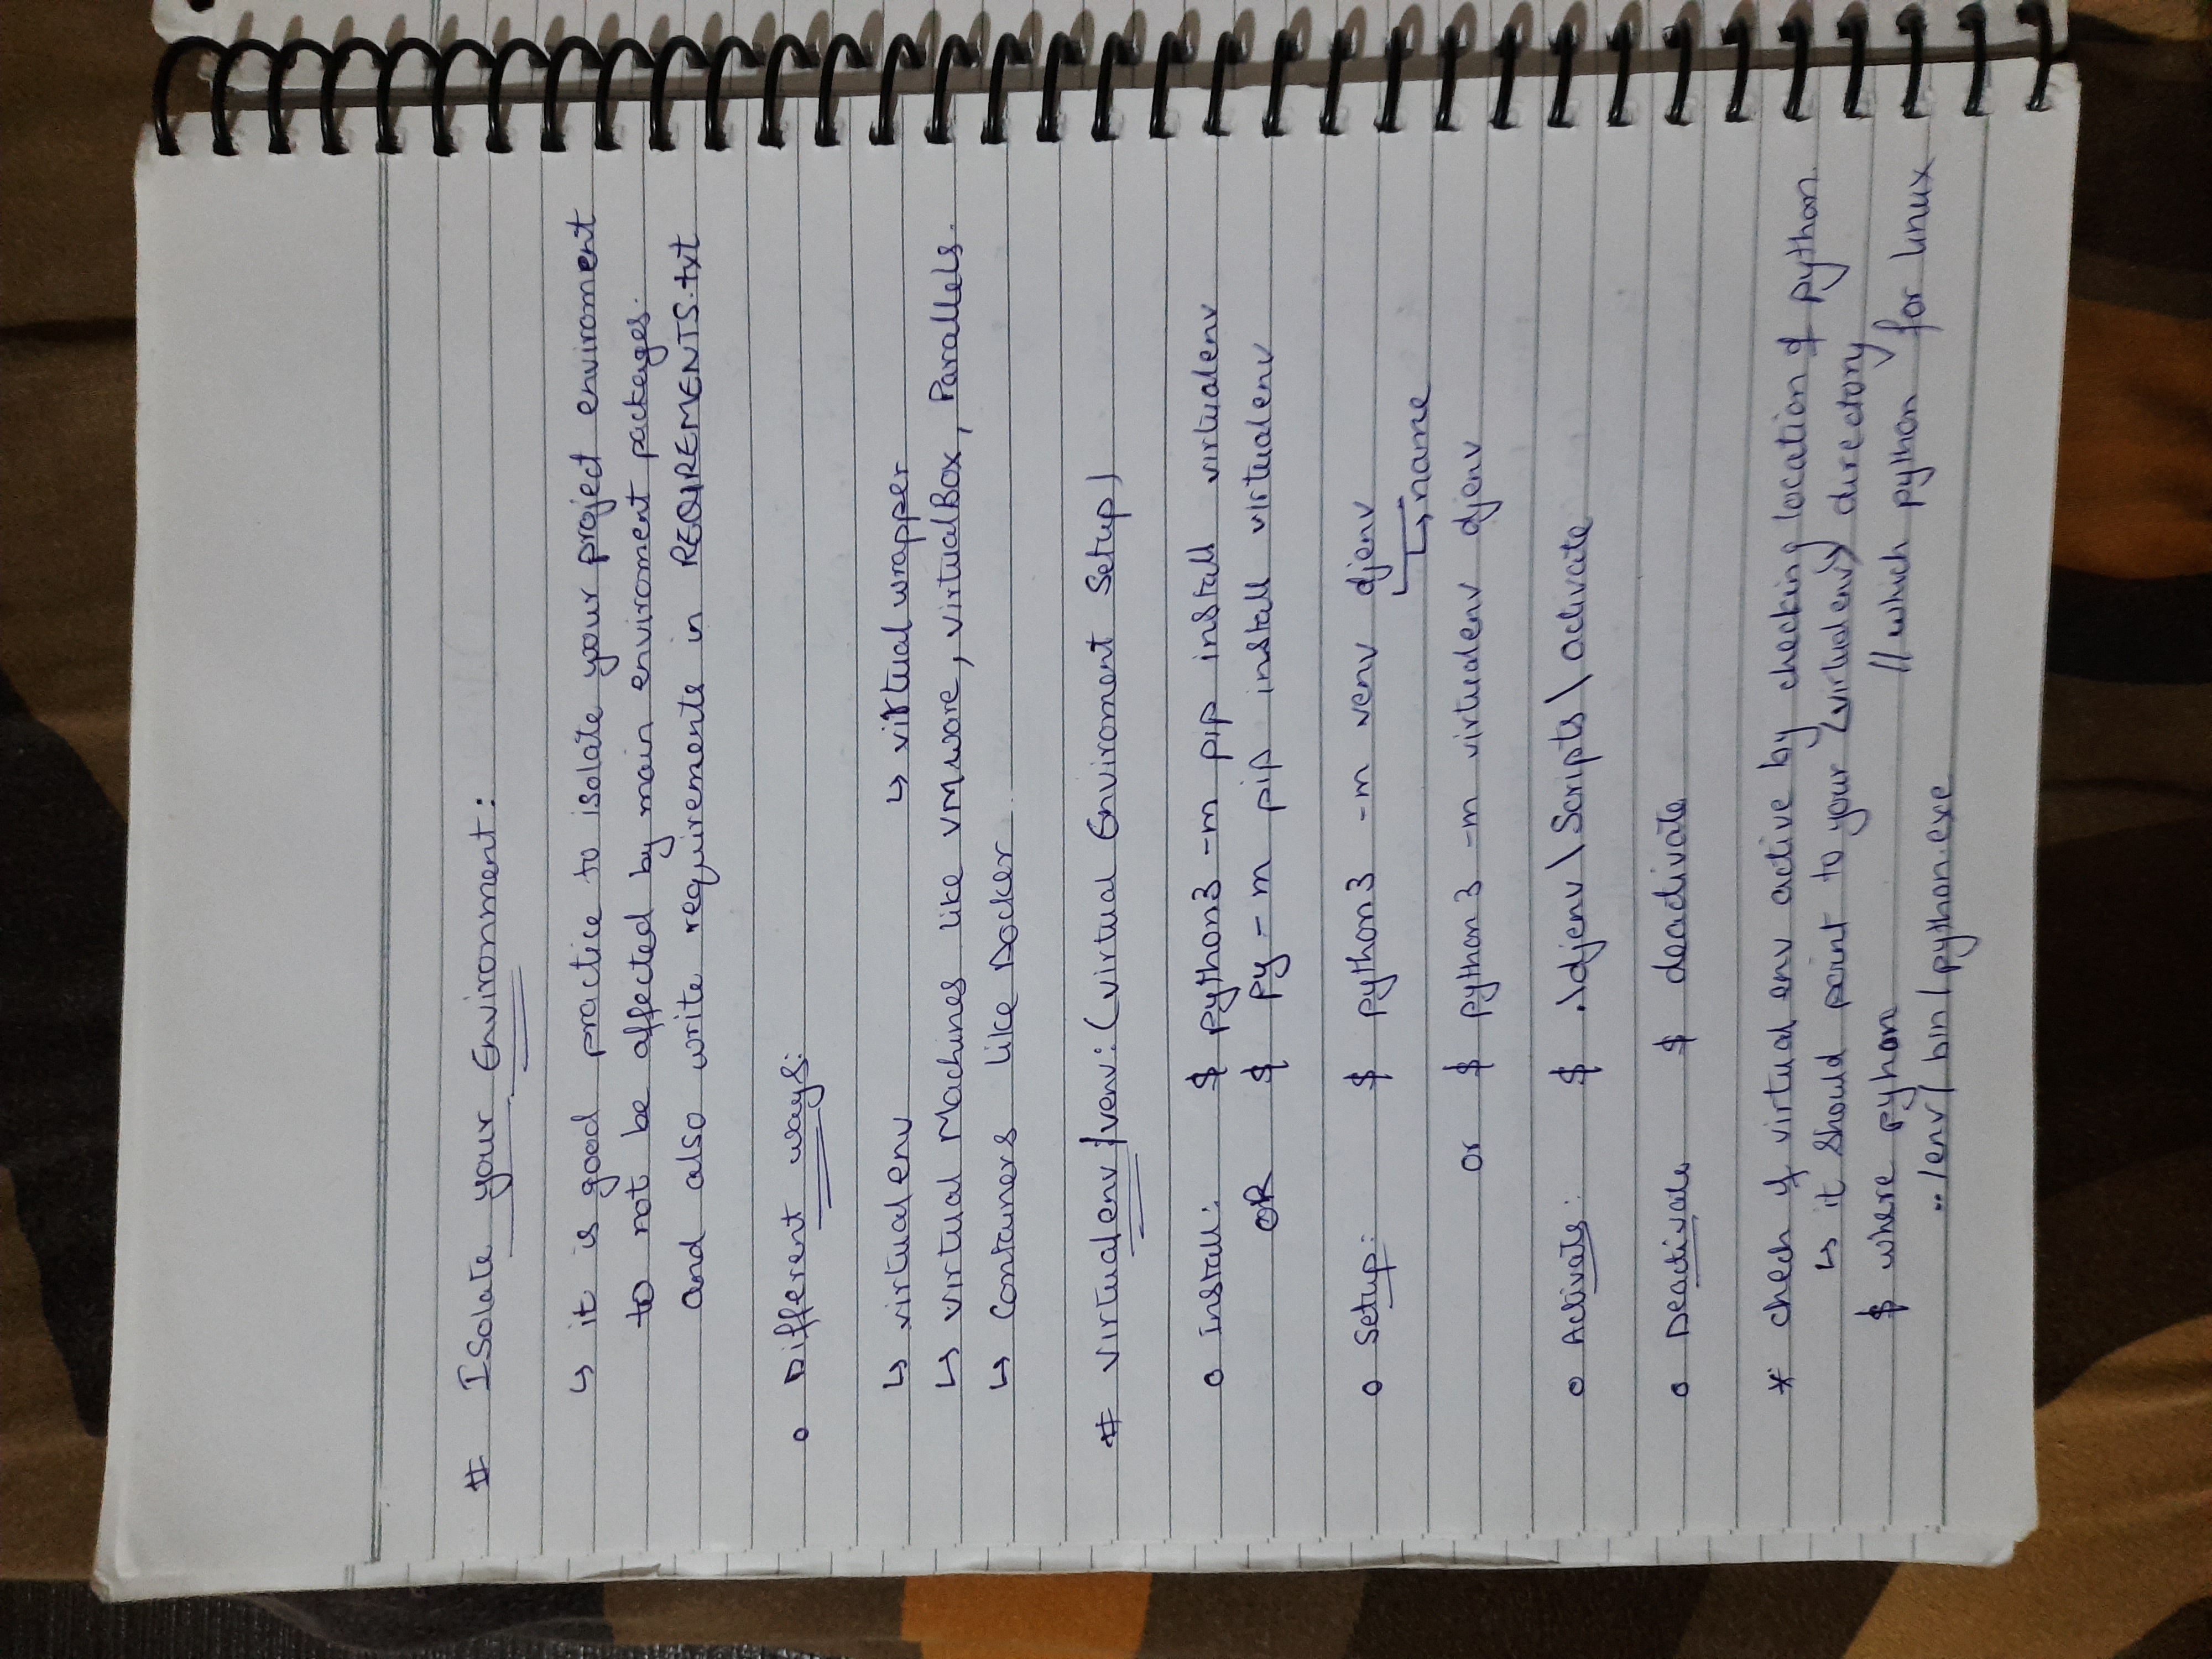 # Isolate your Environment:
↳ it is good practice to isolate your project enviroment
to not be affected by main enviroment packages.
and also write requirements in REQIREMENTS.txt
o Different ways:
↳ virtualenv ↳ virtual wrapper
↳ Virtual Machines like VMware, VirtualBox, Parallels.
↳ Containers like Docker
# Virtualenv/venv: (Virtual Enviroment Setup)
o Install: $ python3 -m pip install virtualenv
OR $ py -m pip install virtualenv
o Setup: $ python3 -m venv djenv
↳ name
or $ python3 -m virtualenv djenv
o Activate: $ .\djenv\Scripts\activate
o Deactivate $ deactivate
* Check if virtual env active by checking location of python.
↳ it should point to your <virtualenv> directory
$ where pyhon // which python for linux
../env/bin/python.exe